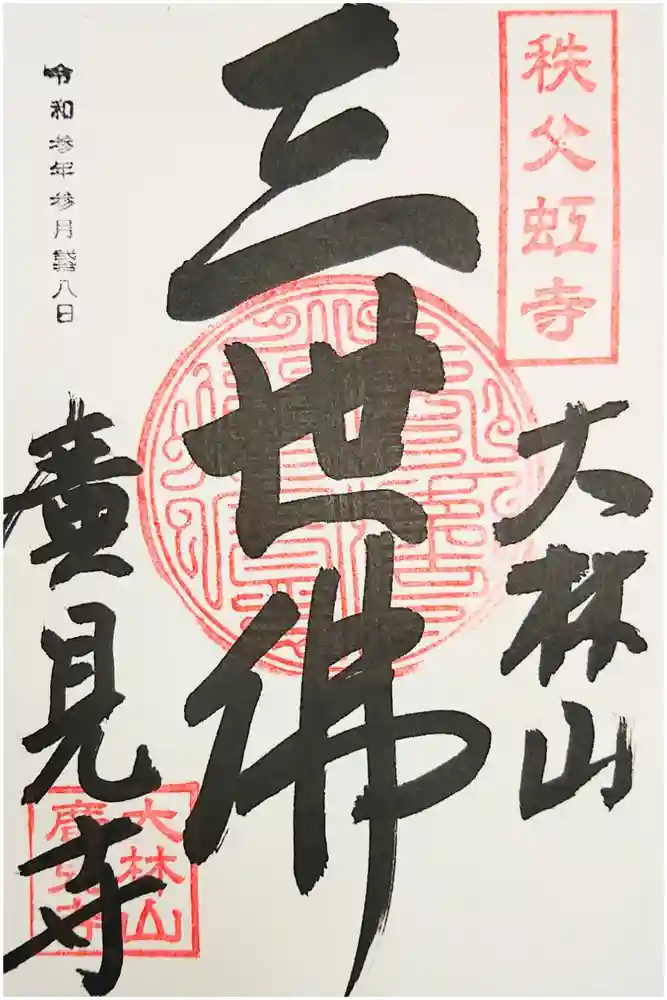 秩父虹寺
大林山
三世佛
令和参年参月貮八日
廣見寺
大林山
廣見寺